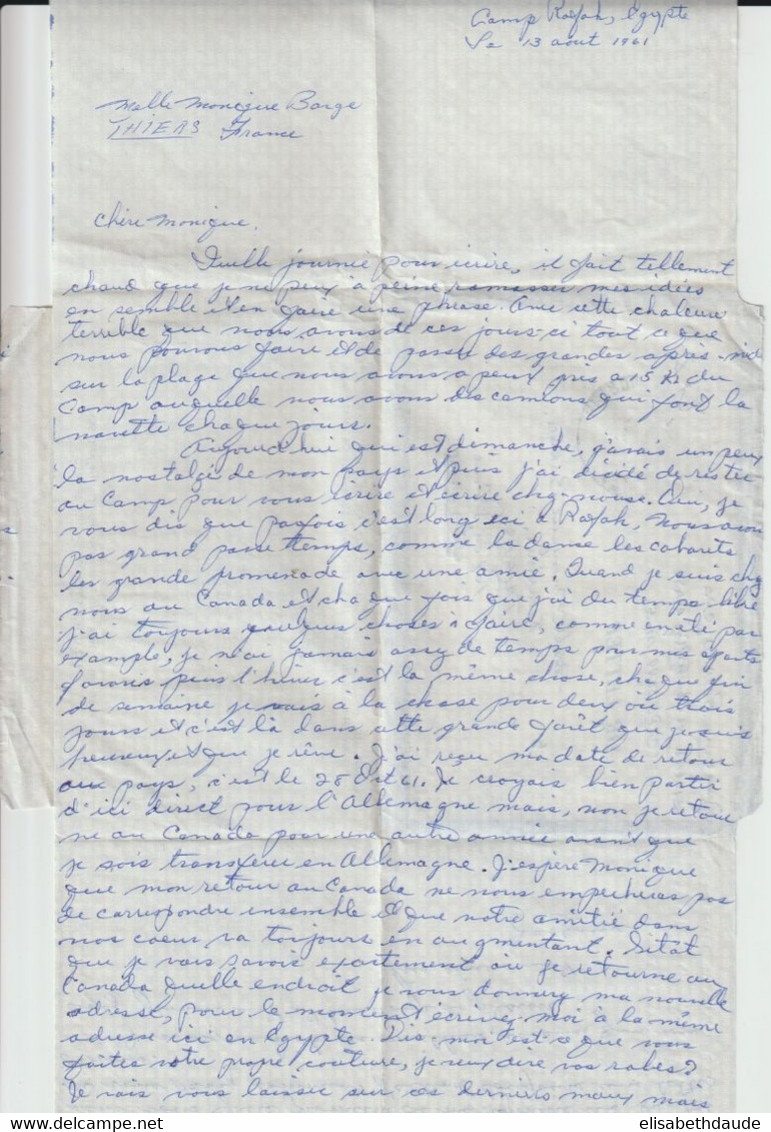 Camp Rafah, Egypte
Le 13 aout 1961
Melle Monique Barge
THIERS France
Chère Monique.
Quelle journée pour écrire, il fait tellement
chaud que je ne peux à peine ramasser mes idées
en semble et en faire une phrase. Avec cette chaleur
terrible que nous avons de ces jours-ci tout ce que
nous pouvons faire et de passer des grandes après-midi
sur la plage que nous avons a peux près a 15 K du
Camp auquelle nous avons des camions qui font la
navette chaque jours.
Aujourd'hui qui est dimanche, j'avais un peux
la nostalgi de mon pays et puis j'ai décidé de rester
au Camp pour vous écrire et écrire chez-nous. Oui, je
vous dis que parfois c'est long ici à Rafah, nous avons
pas grand passe temps, comme la danse les cabarets
les grande promenade avec une amie. Quand je suis chez
nous au Canada et chaque fois que j'ai du temps libre
j'ai toujours quelques choses à faire, comme en été par
example, je n'ai jamais assez de temps pour mes sports
favoris puis l'hiver c'est la même chose, chaque fin
de semaine je vais à la chasse pour deux ou trois
jours et c'est là dans cette grande forêt que je suis
heureux et que je rêve. J'ai reçu ma date de retour
aux pays, c'est le 28 Oct 61. Je croyais bien partir
d'ici direct pour l'Allemagne mais, non je retour
ne au Canada pour une autre année avant que
je sois transferer en Allemagne. J'espère Monique
que mon retour au Canada ne nous empecheras pas
de correpondre ensemble et que notre amitié dans
nos coeur va toujours en augmentant. Sitôt
que je vais savoir exactement où je retourne au
Canada quelle endroit je vous donnerez ma nouvelle
adresse, pour le moment écrivez-moi à la même
adresse ici en Egypte. Dis-moi est-ce que vous
faites votre propre couture, je veux dire vos robes?
Je vais vous laisser sur ces derniers maux mais
elisabethdaude